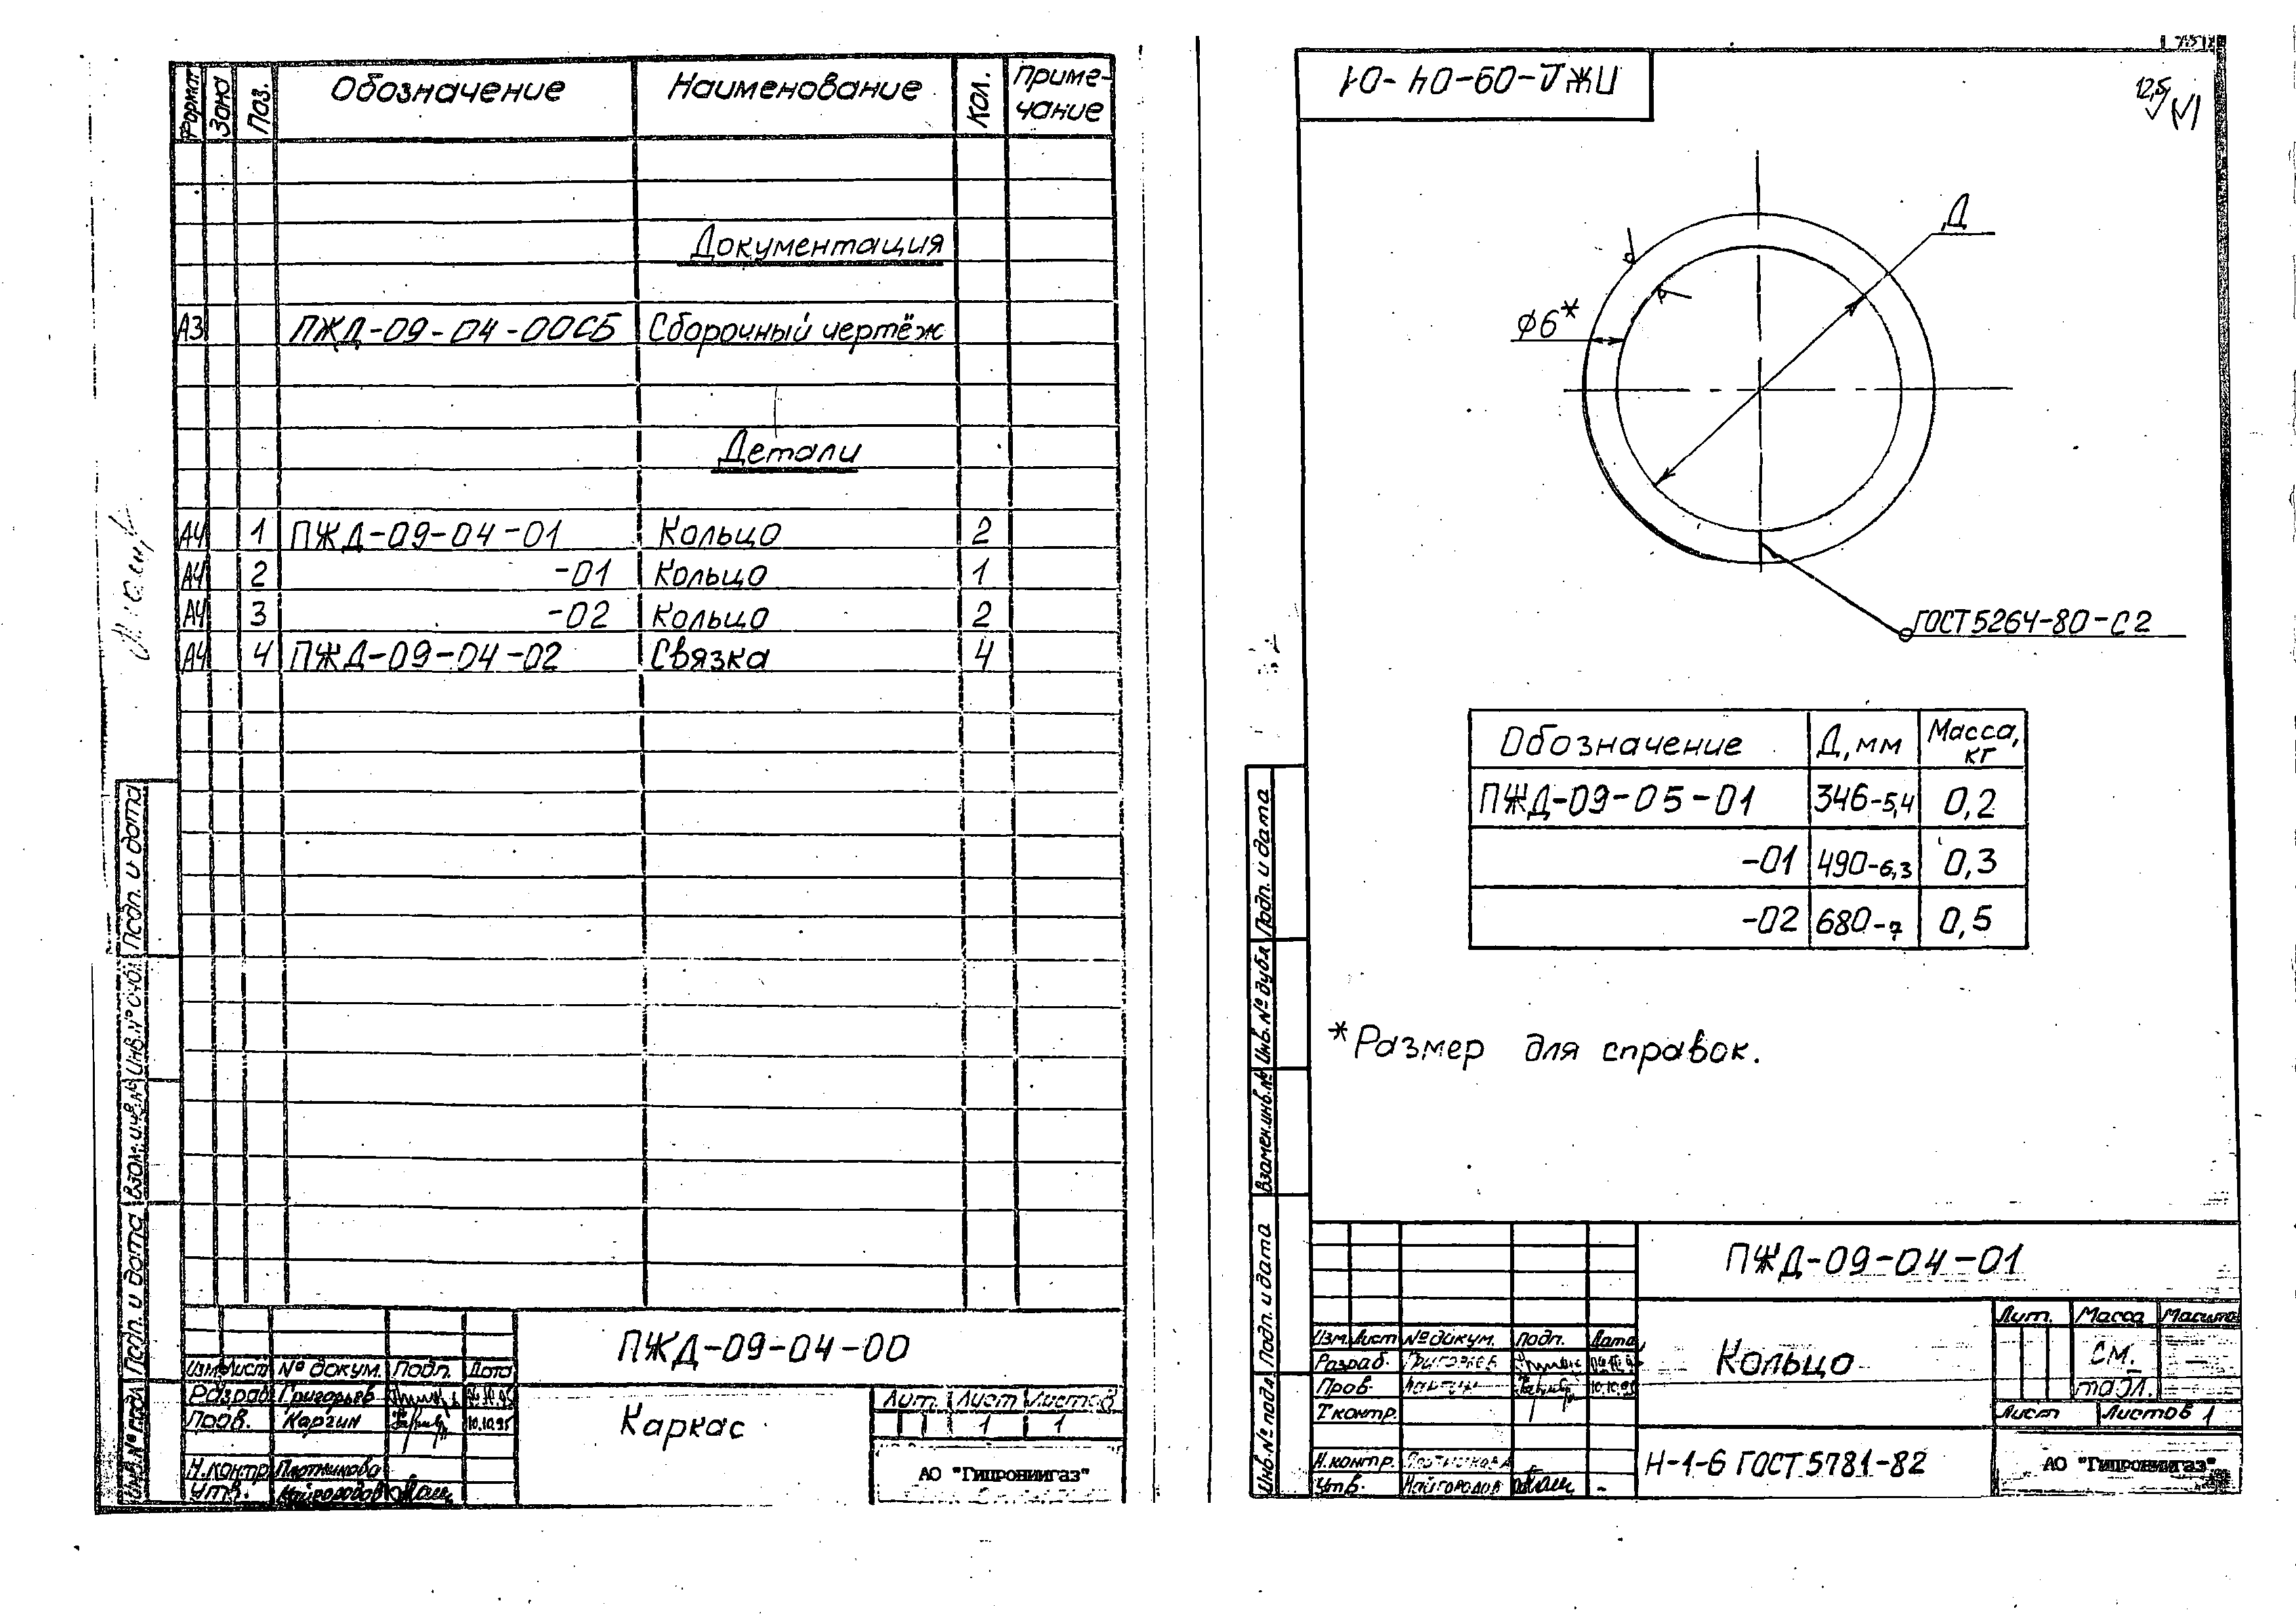 Формат Зона Поз. Обозначение Наименование Кол. Приме-
чание
Документация
А3 ПЖД-09-04-00СБ Сборочный чертёж
Детали
А4 1 ПЖД-09-04-01 Кольцо 2
А4 2 -01 Кольцо 1
А4 3 -02 Кольцо 2
А4 4 ПЖД-09-04-02 Связка 4
Подп. и дата
Взам. инв. №
Подп. и дата
Инв. № подл
ПЖД-09-04-00
Изм. Лист № докум. Подп. Дата
Разраб. Григорьев
Пров. Каргин 10.10.95
Н.контр. Плотникова
Утв.
Каркас
Лит. Лист Листов
1 1
АО "Гипрониигаз"
ПЖД-09-04-01
12,5
Д
ф6*
ГОСТ 5264-80-С2
Обозначение Д, мм Масса,
кг
ПЖД-09-05-01 346-5,4 0,2
-01 490-6,3 0,3
-02 680-7 0,5
*Размер для справок.
Подп. и дата
Инв. № дубл
Взамен.инв.№
Подп. и дата
Инв. № подл
ПЖД-09-04-01
Изм. Лист № докум. Подп. Дата
Разраб. Григорьев
Пров. 10.10.95
Т.контр.
Н.контр.
Утв. Найгородов
Кольцо
Лит. Масса
См. —
табл.
Лист Листов 1
Н-1-6 ГОСТ 5781-82
АО "Гипрониигаз"